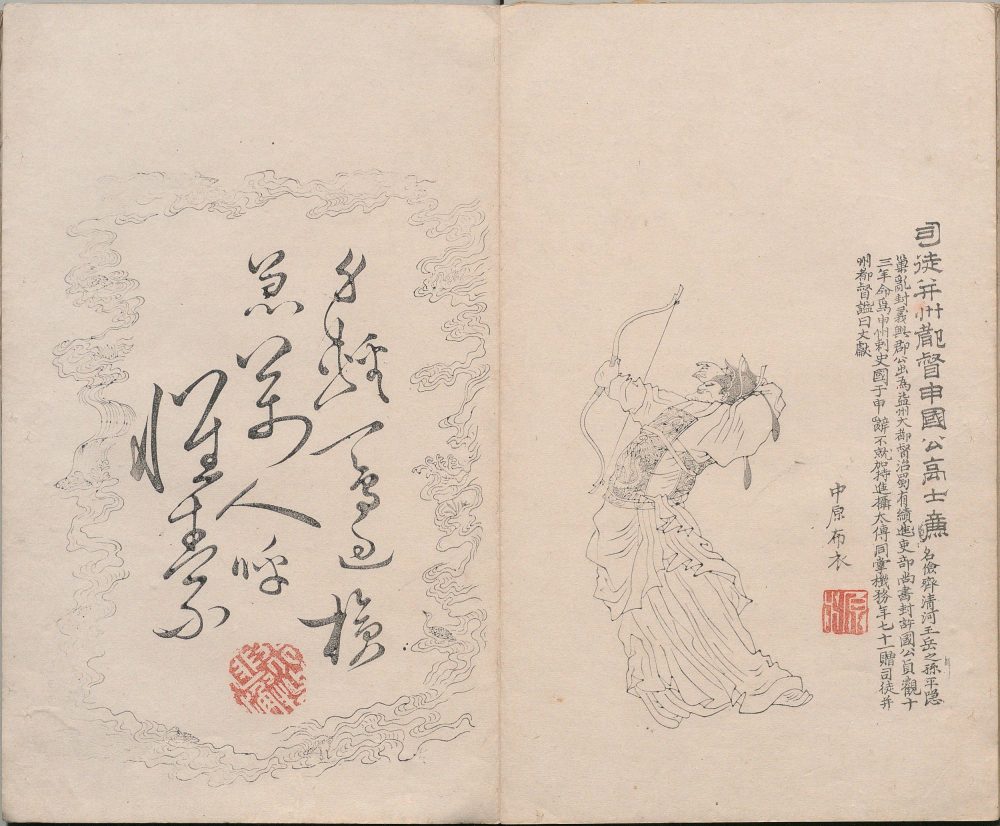 司徒并州都督申國公高士廉
名儉齊清河王岳之孫平隱
巢亂封義興郡公出為益州大都督治蜀有績進吏部尚書封許國公貞觀十
三年命為申州刺史國于申辭不就加特進攝太傅同掌機務年七十一贈司徒并
州都督諡曰文獻
中原布衣
身輕一鳥過槍
急萬人呼